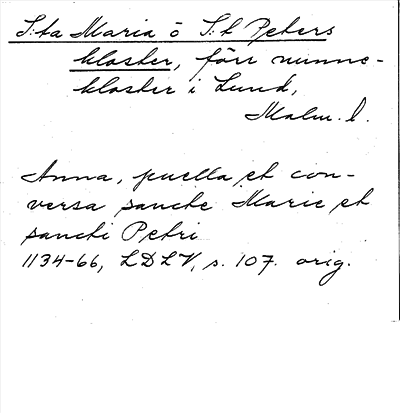 S:ta Maria o S:t Peters
kloster, förr nunne-
kloster i Lund,
Malm. l.
Anna, puella et con-
versa sancte Marie et
sancti Petri
1134-66, LDLV, s. 107. orig.